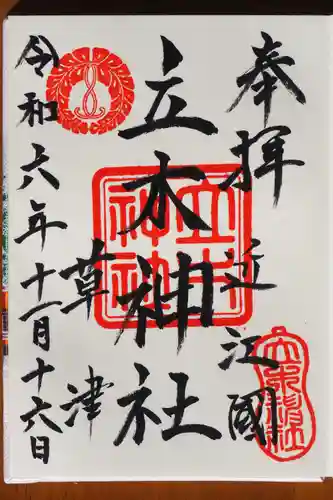 奉拝
近江國
立木神社
草津
令和六年十一月十六日
立木神社